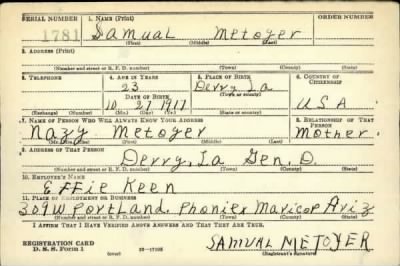 SERIAL NUMBER 1. NAME (Print) ORDER NUMBER
1781 Samual Metoyer
(First) (Middle) (Last)
2. ADDRESS (Print)
(Number and street or R. F. D. number) (Town) (County) (State)
3. TELEPHONE 4. AGE IN YEARS 5. PLACE OF BIRTH 6. COUNTRY OF CITIZENSHIP
23 Derry La
DATE OF BIRTH (Town or county)
10 27 1917 USA
(Exchange) (Number) (Mo.) (Day) (Yr.) (State or country)
7. NAME OF PERSON WHO WILL ALWAYS KNOW YOUR ADDRESS 8. RELATIONSHIP OF THAT PERSON
Nazy Metoyer Mother
(Mr., Mrs., Miss) (First) (Middle) (Last)
9. ADDRESS OF THAT PERSON
Derry, La Gen. D.
(Number and street or R. F. D. number) (Town) (County) (State)
10. EMPLOYER'S NAME
Effie Keen
11. PLACE OF EMPLOYMENT OR BUSINESS
309 W Portland. Phoniex Maricop Ariz
(Number and street or R. F. D. number) (Town) (County) (State)
I AFFIRM THAT I HAVE VERIFIED ABOVE ANSWERS AND THAT THEY ARE TRUE.
REGISTRATION CARD
D. S. S. Form 1 (over) SAMUAL METOYER
(Registrant's signature)